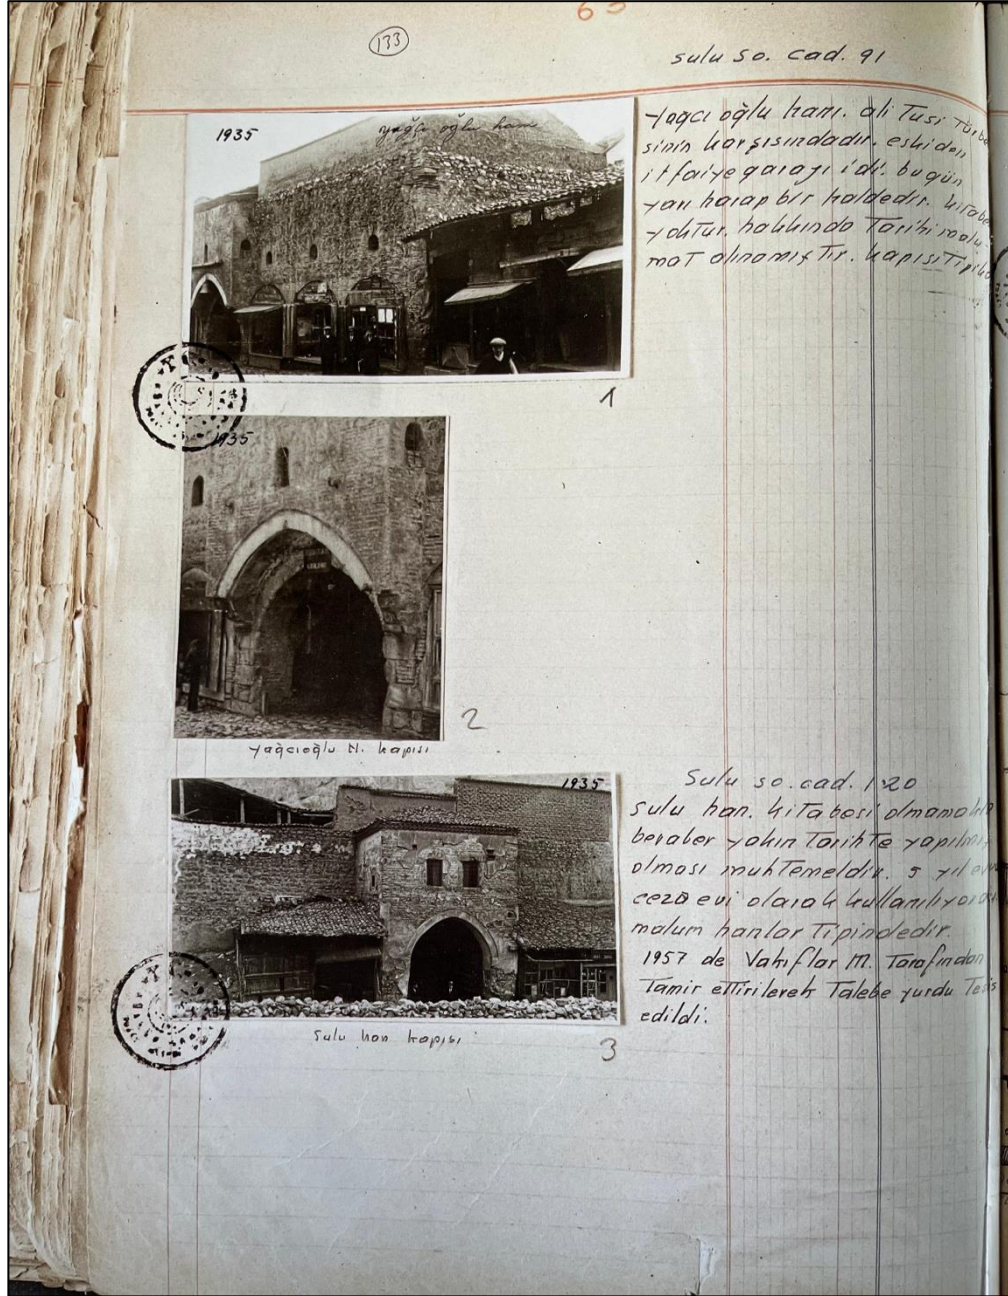 63
133
sulu so. cad. 91
1935
yağcı oğlu hanı
yağcı oğlu hanı. ali Tusi Türbe
sinin karşısındadır. eskiden
itfaiye garajı idi. bugün
yarı harap bir haldedir. kitabe
yoktur. hakkında Tarihi malu
mat alınamıştır. kapısı Tipik
1
1935
2
yağcıoğlu H. kapısı
1935
Sulu so. cad. 120
sulu han. kitabesi olmamakla
beraber yakın Tarihte yapılmış
olması muhtemeldir. 5 yıl
ceza evi olarak kullanılıyor
malum hanlar Tipindedir.
1957 de Vakıflar M. Tarafından
Tamir ettirilerek Talebe yurdu Tesis
edildi.
Sulu han kapısı
3